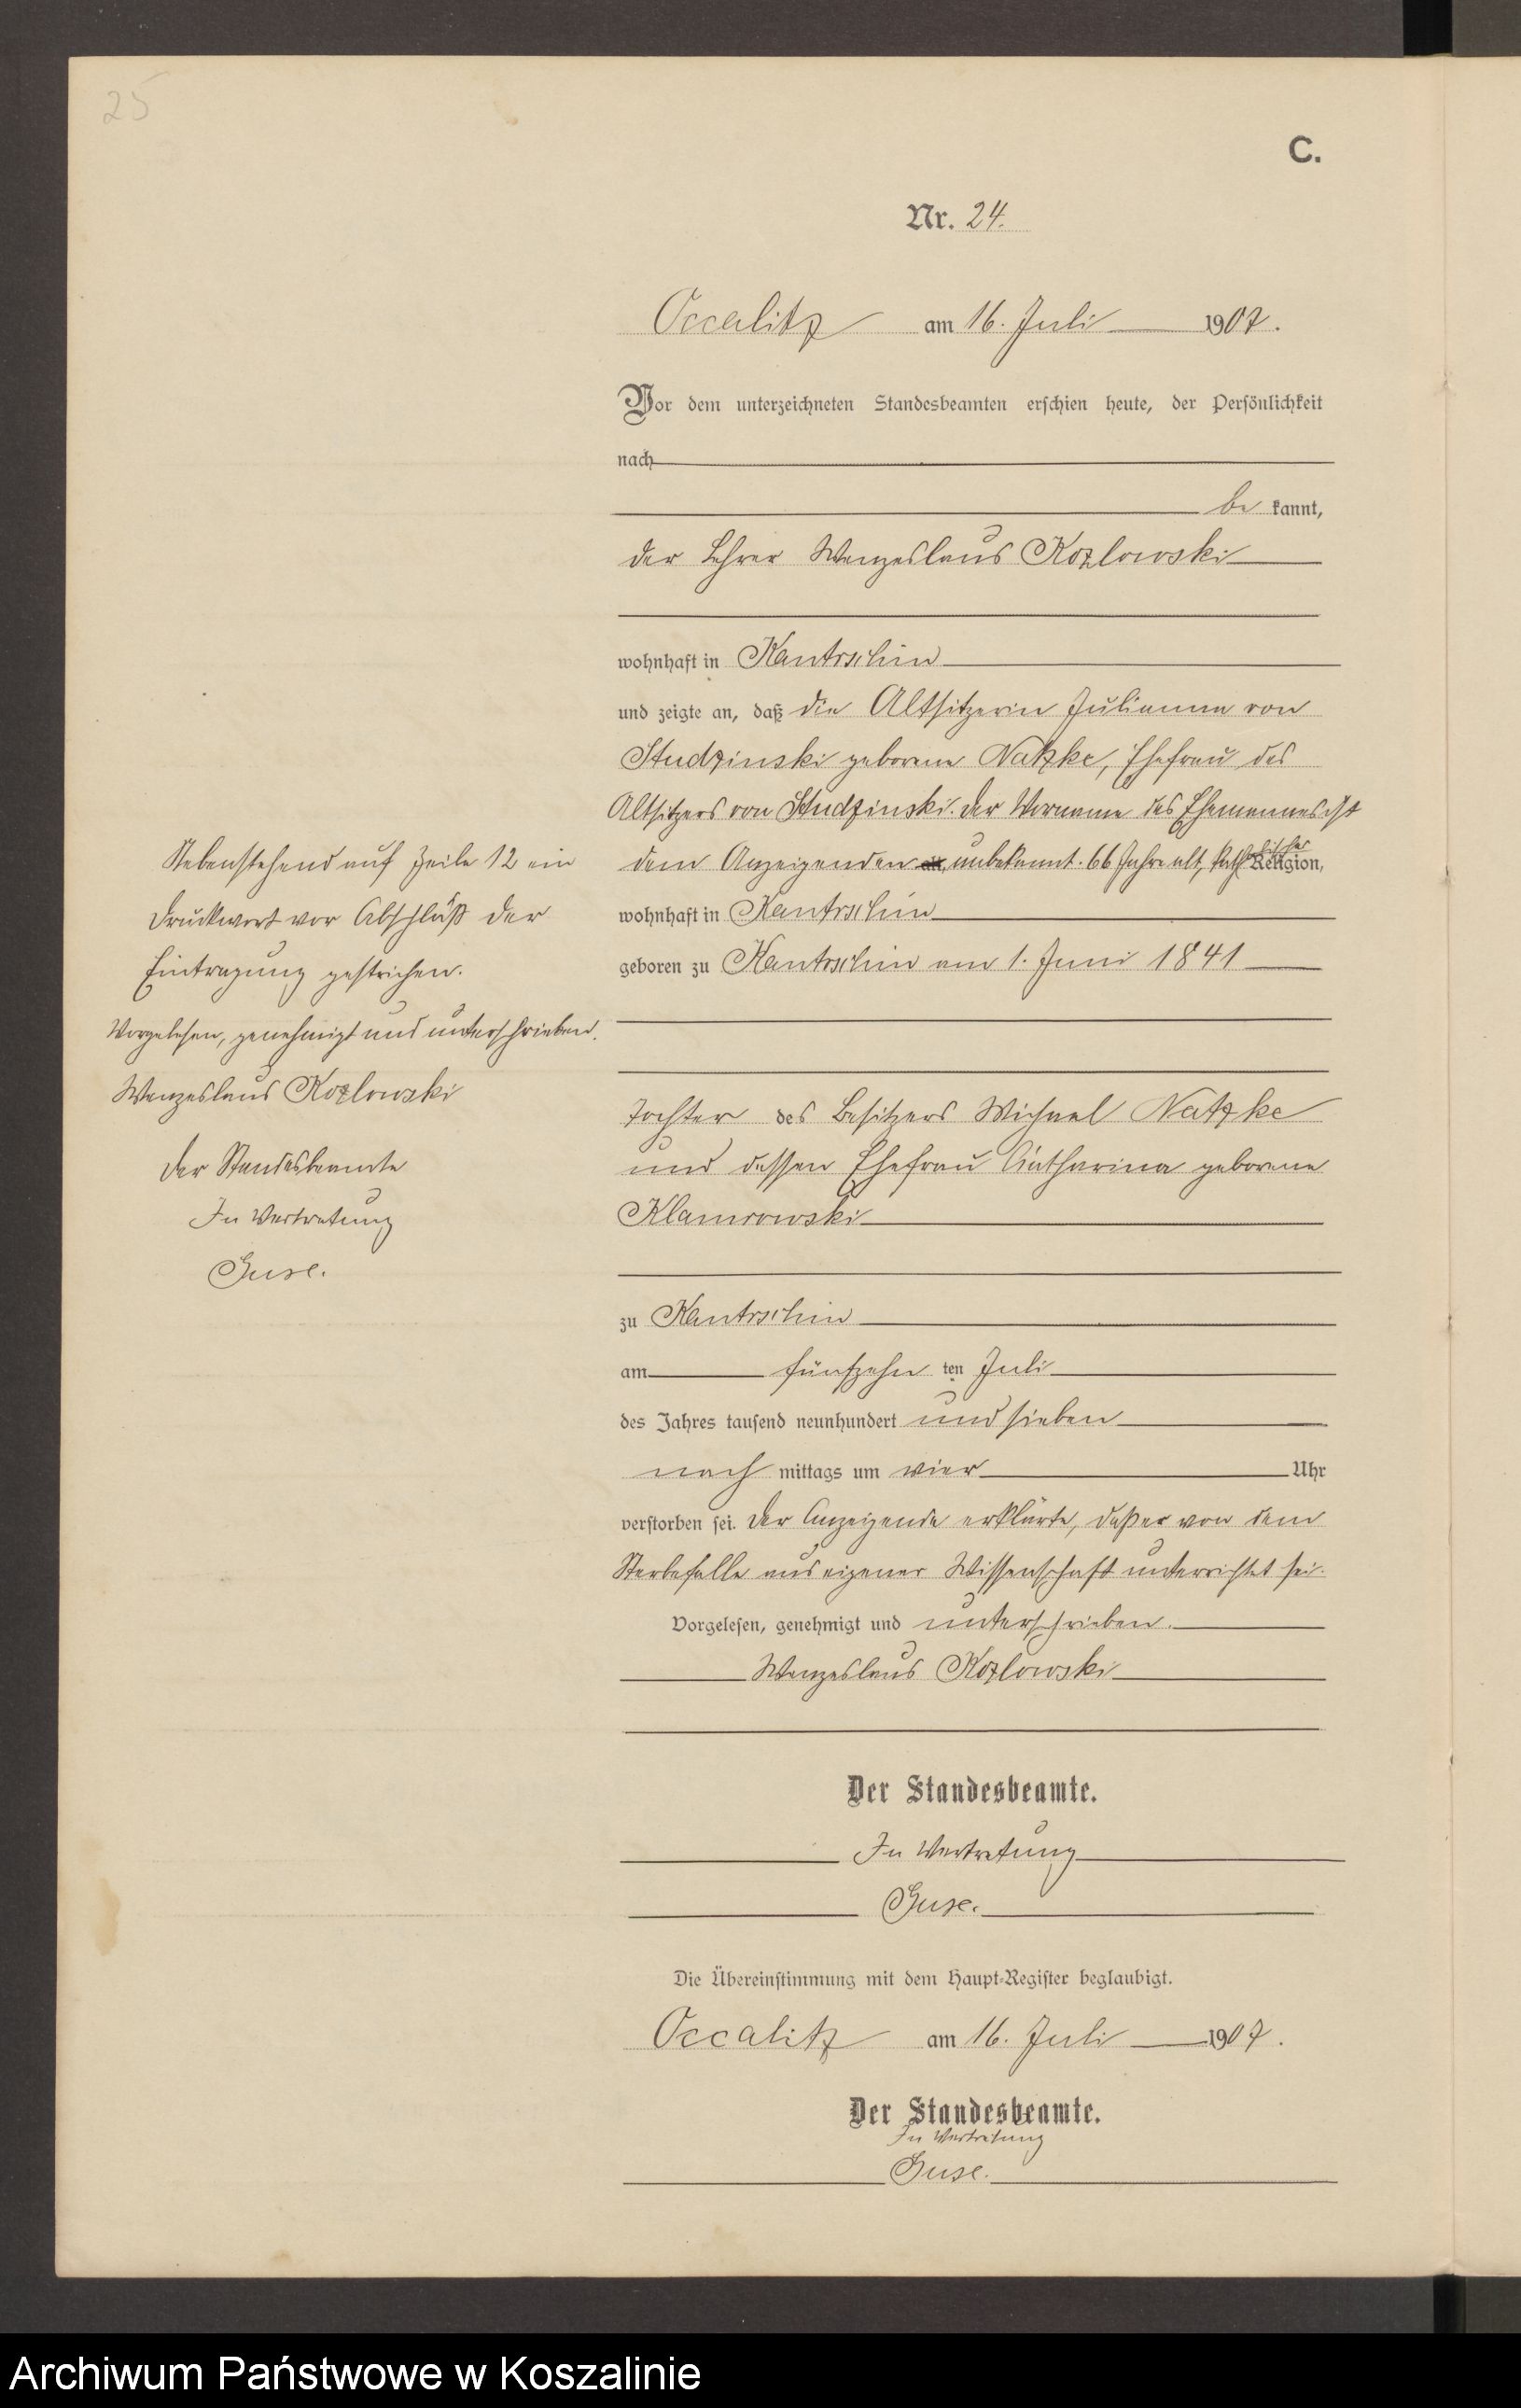 25
C.
Nr. 24.
Occalitz am 16. Juli 1907.
Vor dem unterzeichneten Standesbeamten erschien heute, der Persönlichkeit
nach
be kannt,
der Lehrer Wenzeslaus Kozlowski
wohnhaft in Kantrschin
und zeigte an, daß die Altsitzerin Julianna von
Studzinski geborene Natzke, Ehefrau des
Altsitzers von Studzinski. Der Vorname des Ehemannes ist
dem Anzeigenden unbekannt. 66 Jahre alt, katholischer Religion,
wohnhaft in Kantrschin
geboren zu Kantrschin am 1. Juni 1841
Tochter des Besitzers Michael Natzke
und dessen Ehefrau Catharina geborene
Klamrowski
zu Kantrschin
am fünfzehn ten Juli
des Jahres tausend neunhundert und sieben
nach mittags um vier Uhr
verstorben sei. Der Anzeigende erklärte, daß er von dem
Sterbefalle aus eigener Wissenschaft unterrichtet sei.
Vorgelesen, genehmigt und unterschrieben.
Wenzeslaus Kozlowski
Der Standesbeamte.
In Vertretung
Guse.
Die Übereinstimmung mit dem Haupt-Register beglaubigt.
Occalitz am 16. Juli 1907.
Der Standesbeamte.
In Vertretung
Guse.
Nebenstehend auf Zeile 12 ein
Druckwort vor Abschluß der
Eintragung gestrichen.
Vorgelesen, genehmigt und unterschrieben.
Wenzeslaus Kozlowski
Der Standesbeamte
In Vertretung
Guse.
Archiwum Państwowe w Koszalinie